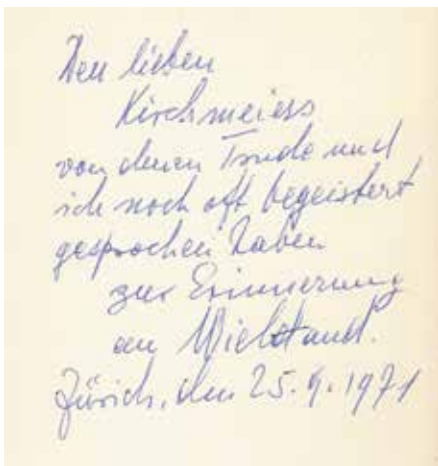 Den lieben
Kirchmeiers
von denen Trude und
ich noch oft begeistert
gesprochen haben
zur Erinnerung
an
Zürich, den 25.9.1971